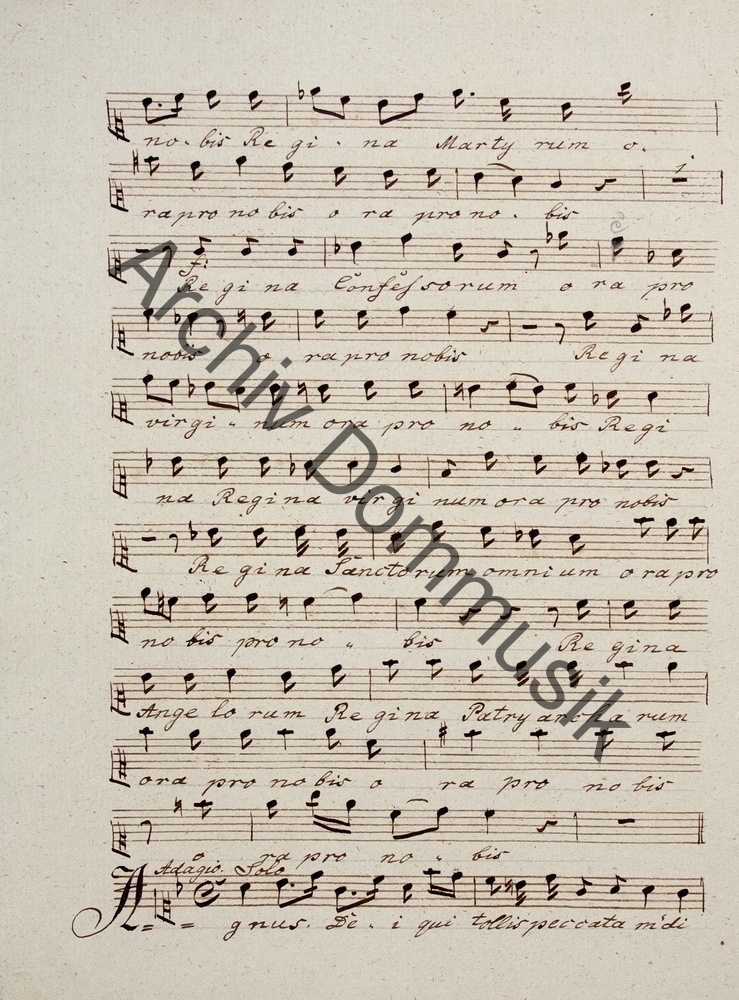 no - bis Re gi - na Marty rum o -
1.
ra pro no bis o ra pro no - bis
f:
Re gi na Confessorum o ra pro
nobis o ra pro nobis Re gi na
virgi - num ora pro no - bis Regi
na Regina virgi num ora pro nobis
Re gi na Sanctorum omni um o ra pro
no bis pro no - bis Re gina
Ange lo rum Re gina Patry archa rum
ora pro no bis o ra pro no bis
o ra pro no - bis
Adagio. Solo
A - - gnus. De - i qui tollis peccata mūdi
Archiv Dommusik